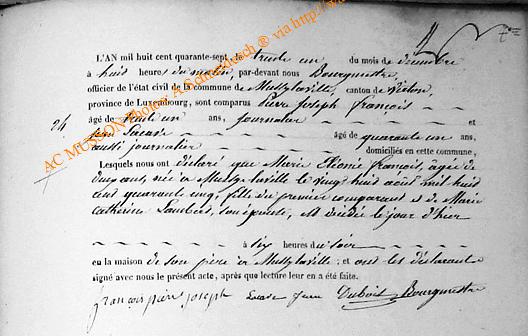 4
7e
L'AN mil huit cent quarante-sept, le trente un du mois de décembre
à huit heures du matin, par-devant nous Bourgmestre,
officier de l'état civil de la commune de Mussy-la-ville, canton de Virton,
province de Luxembourg, sont comparus Pierre Joseph François
24 âgé de trente un ans, journalier et
Jean Lacave âgé de quarante un ans
aussi journalier domiciliés en cette commune,
Lesquels nous ont déclaré que Marie Eléonie François, âgée de
deux ans, née à Mussy-la-ville le vingt huit août mil huit
cent quarante cinq, fille du premier comparant et de Marie
Catherine Lambert, son épouse, est décédée le jour d'hier
à six heures du soir
en la maison de son père à Mussy-la-ville ; et ont les déclarants
signé avec nous le présent acte, après que lecture leur en a été faite.
françois pierre joseph Lacave Jean Dubois Bourgmestre
AC MUSSON Photos A. Schmickrath ® via http://w